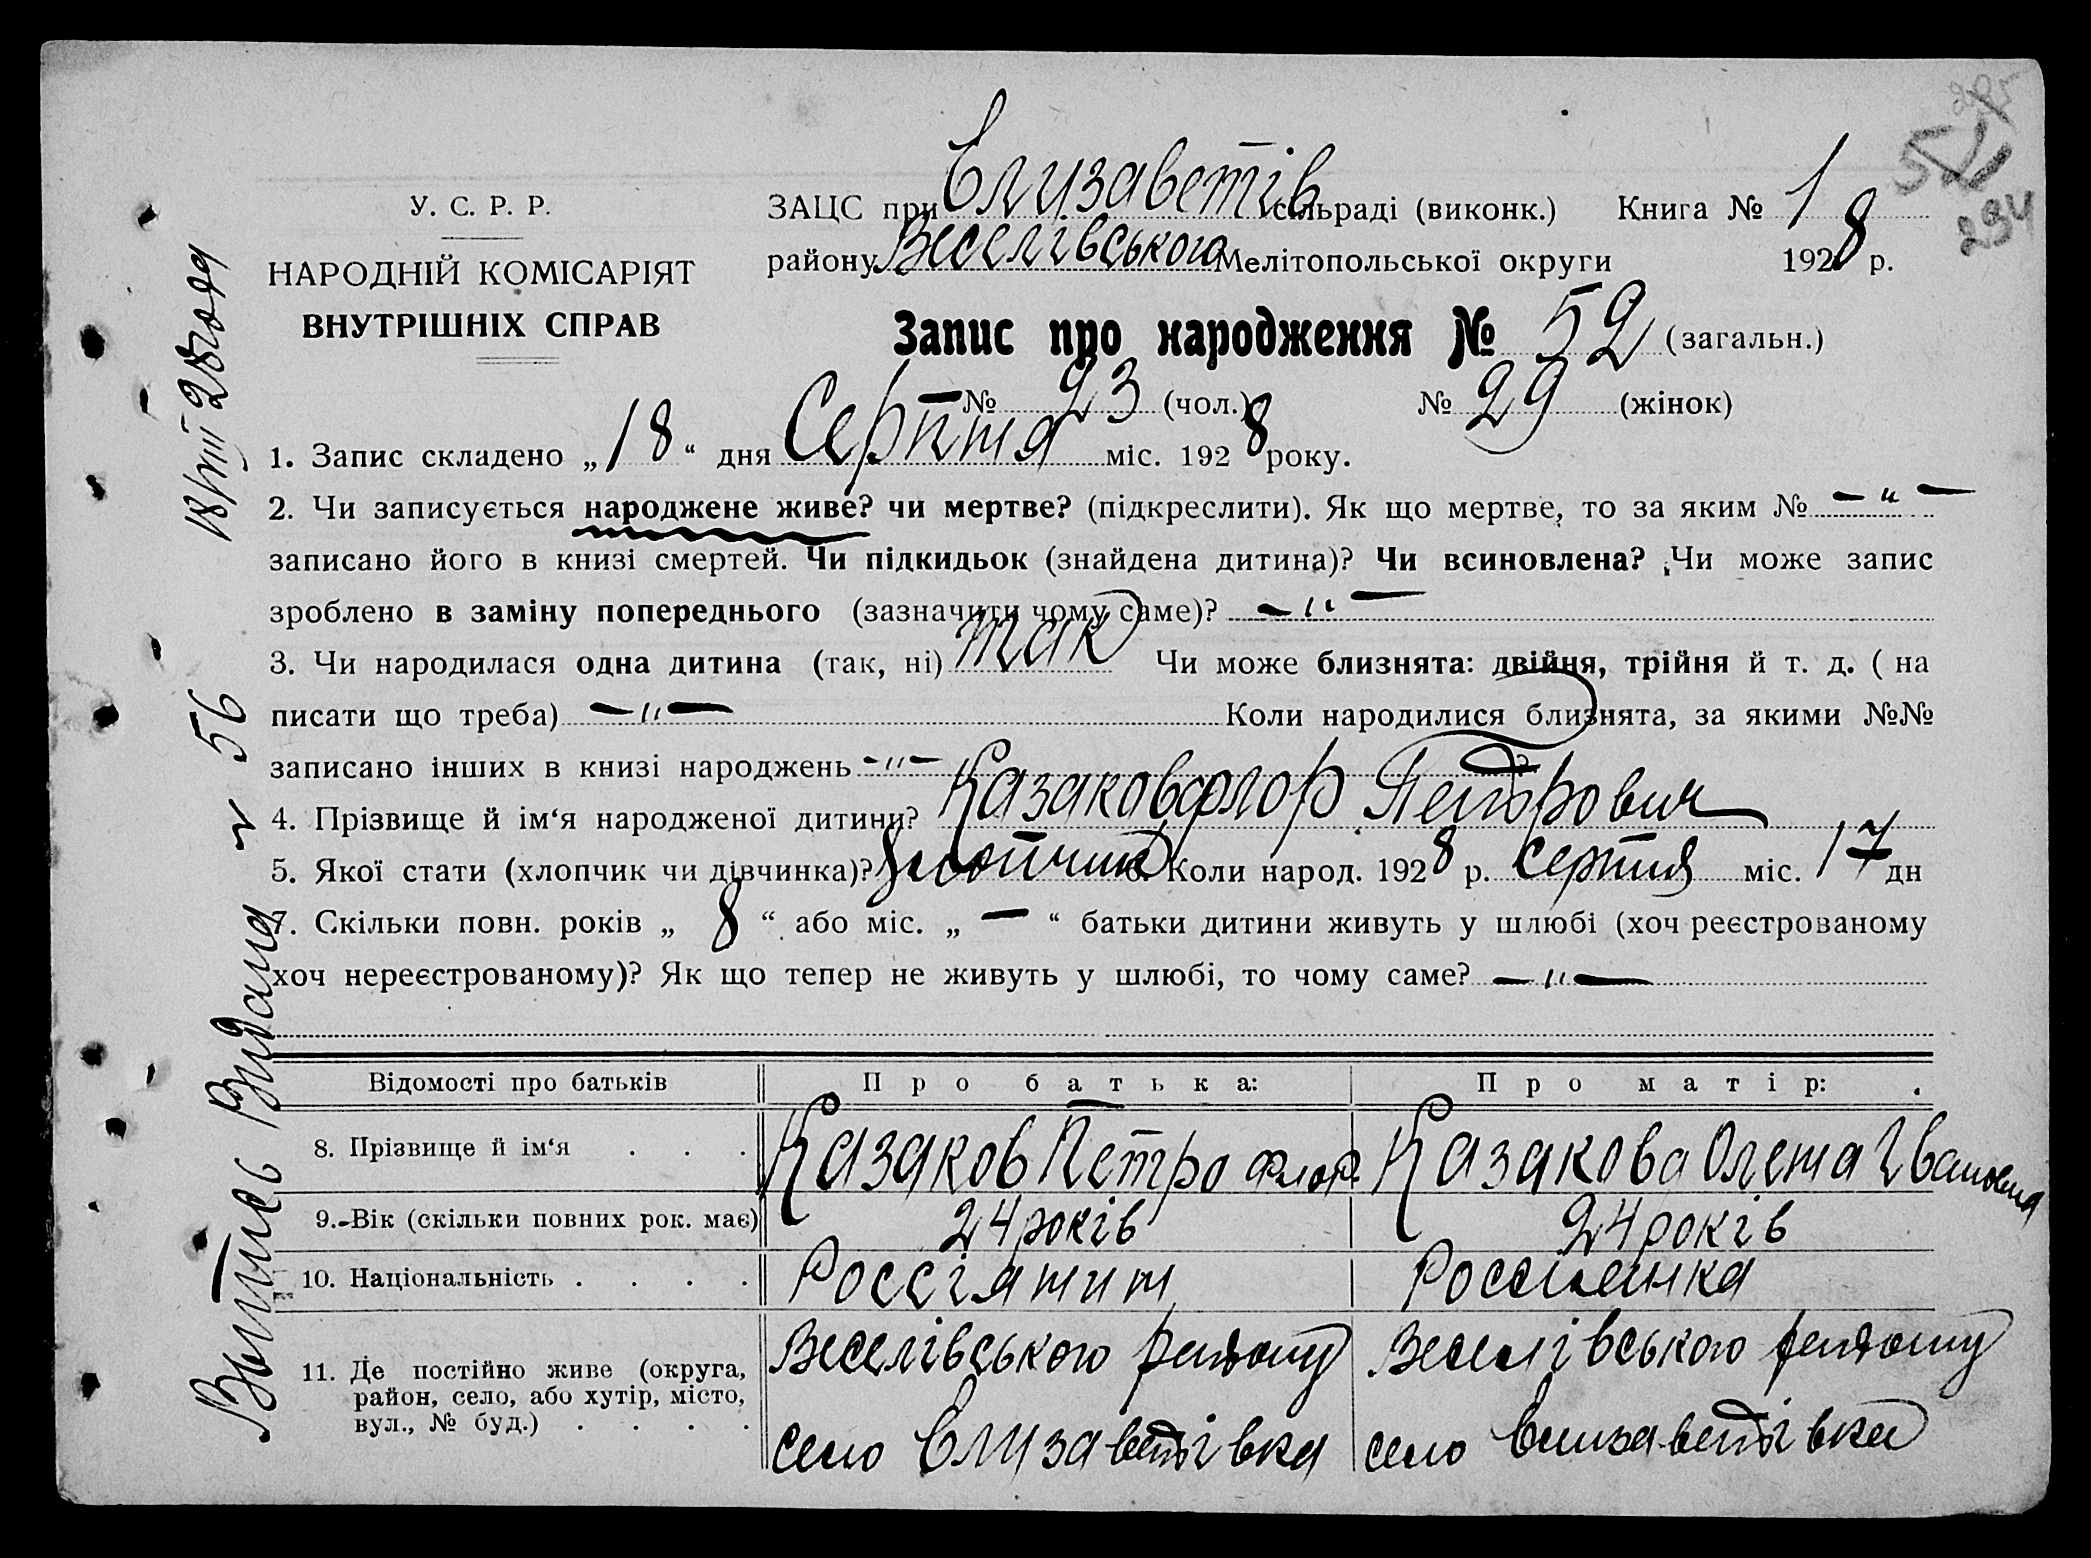 У. С. Р. Р.
НАРОДНІЙ КОМІСАРІЯТ
ВНУТРІШНІХ СПРАВ
ЗАЦС при Єлизаветів сільраді (виконк.) Книга № 1
району Веселівського Мелітопольської округи 1928 р.
52
294
Запис про народження № 52 (загальн.)
№ 23 (чол.) № 29 (жінок)
1. Запис складено „18“ дня Серпня міс. 1928 року.
2. Чи записується народжене живе? чи мертве? (підкреслити). Як що мертве, то за яким № — " —
записано його в книзі смертей. Чи підкидьок (знайдена дитина)? Чи всиновлена? Чи може запис
зроблено в заміну попереднього (зазначити чому саме)? — " —
3. Чи народилася одна дитина (так, ні) так Чи може близнята: двійня, трійня й т. д. ( на
писати що треба) — " — Коли народилися близнята, за якими №№
записано інших в книзі народжень - " - ?
4. Прізвище й ім‘я народженої дитини? Казаков Флор Петрович
5. Якої стати (хлопчик чи дівчинка)? Хлопчик Коли народ. 1928 р. серпня міс. 17 дн
7. Скільки повн. років „ 8 “ або міс. „ — “ батьки дитини живуть у шлюбі (хоч реєстрованому
хоч нереєстрованому)? Як що тепер не живуть у шлюбі, то чому саме? — " —
Відомості про батьків Про батька: Про матір:
8. Прізвище й ім‘я . . . Казаков Петро Флор. Казакова Олена Івановна
9. Вік (скільки повних рок. має) 24 років 24 років
10. Національність . . . . Россіянин Россиянка
11. Де постійно живе (округа, район, село, або хутір, місто, вул., № буд.) . . . .
Веселівського району
село Єлизаветівка
Веселівського району
село Єлизаветівка
Выпись Видана № 56 18/VIII 28 года